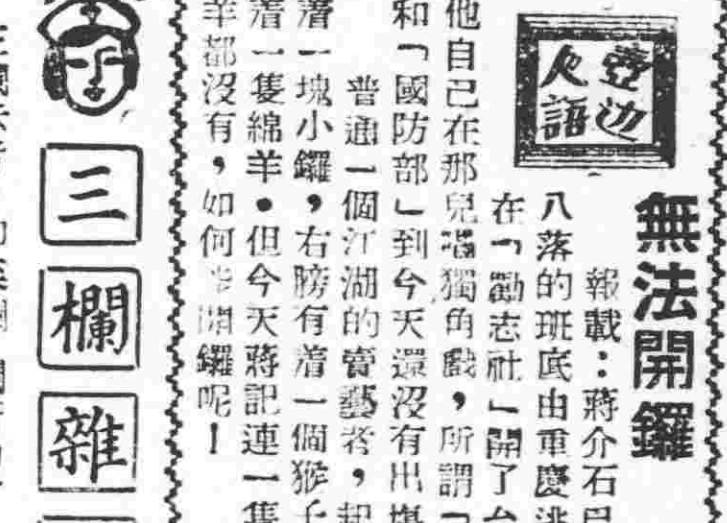 壺邊人語
無法開鑼
報載：蔣介石
八落的班底由重慶
在「勵志社」開了
他自己在那兒唱獨角戲，所謂「
和「國防部」到今天還沒有出
普通一個江湖的賣藝者，起
着一塊小鑼，右膀有着一個猴子
着一隻綿羊・但今天蔣記連一隻
羊都沒有，如何 開鑼呢！
三欄雜